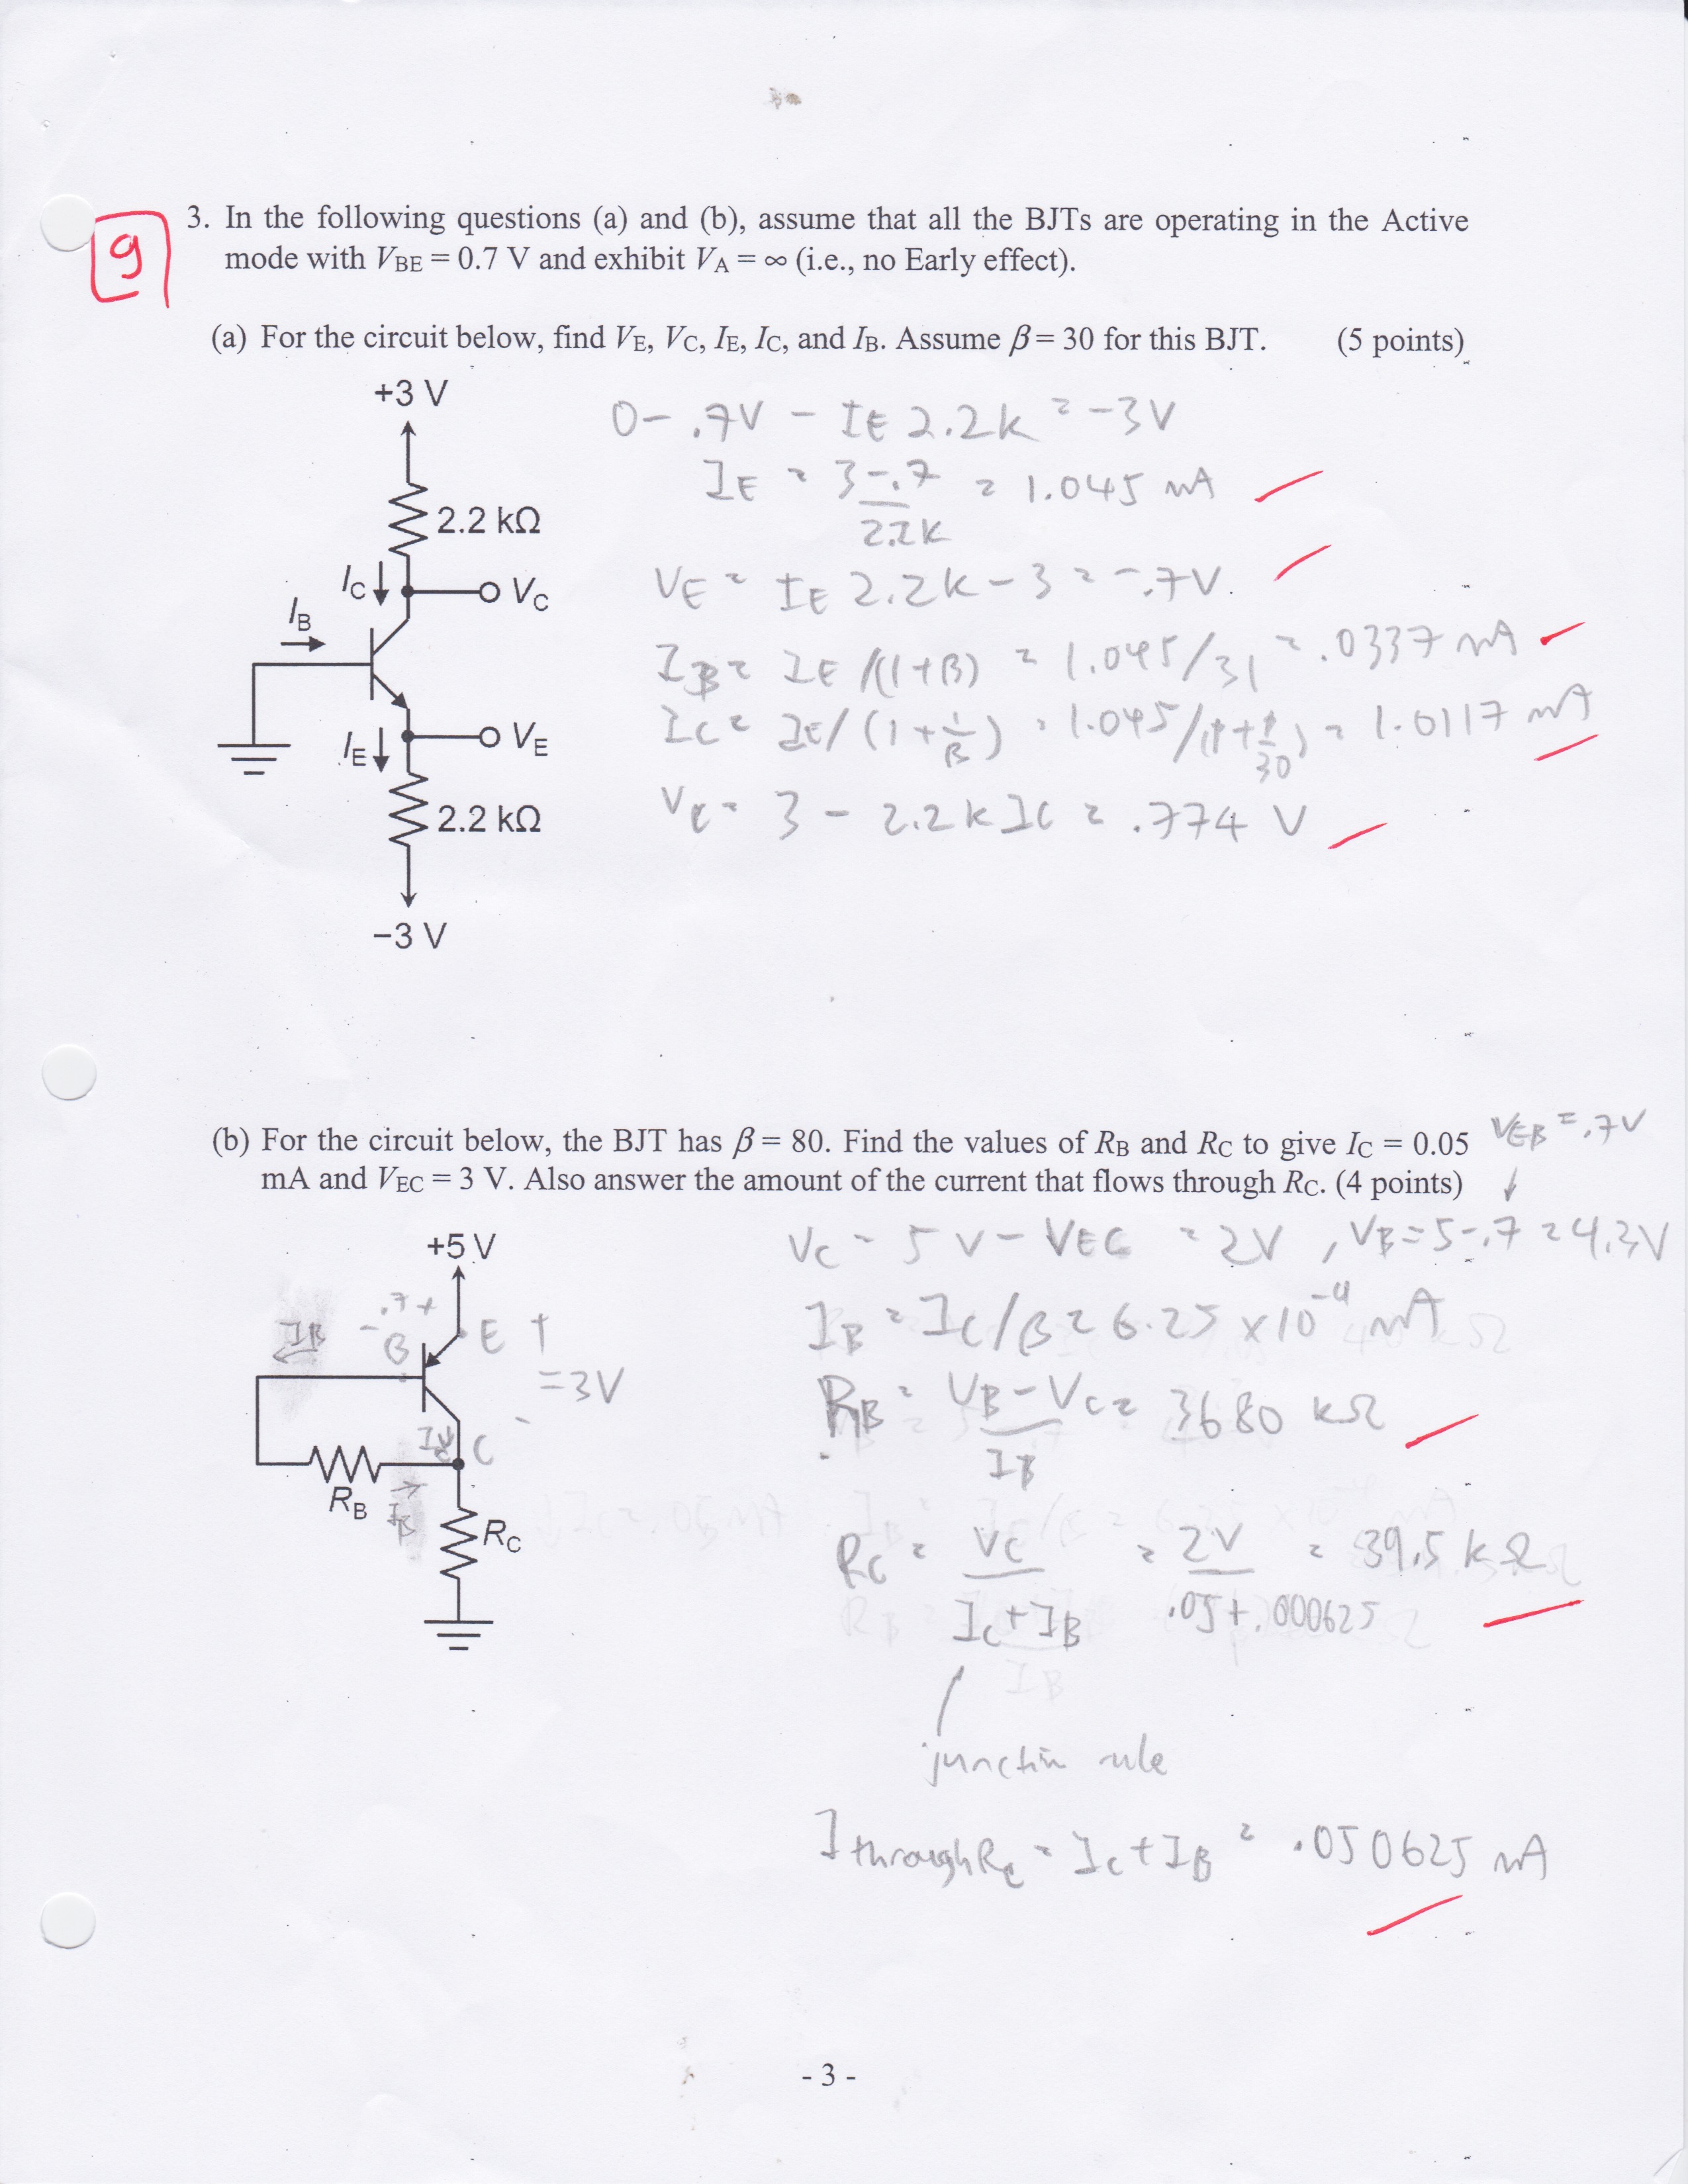 9
3. In the following questions (a) and (b), assume that all the BJTs are operating in the Active
mode with VBE = 0.7 V and exhibit VA = ∞ (i.e., no Early effect).
(a) For the circuit below, find VE, VC, IE, IC, and IB. Assume β = 30 for this BJT. (5 points)
+3 V
2.2 kΩ
IC
VC
IB
IE
VE
2.2 kΩ
−3 V
0 - .7V - IE 2.2k = -3V
IE = 3-.7 = 1.045 mA
2.2k
VE = IE 2.2k - 3 = -.7V.
IB = IE /(1+β) = 1.045/31 = .0337 mA
IC = IE/(1+1/β) = 1.045/(1+1/30) = 1.0117 mA
VC = 3 - 2.2k IC = .774 V
(b) For the circuit below, the BJT has β = 80. Find the values of RB and RC to give IC = 0.05
mA and VEC = 3 V. Also answer the amount of the current that flows through RC. (4 points)
VEB = .7V
+5 V
.7 +
-
IB
B
E +
= 3V
-
IC
C
RB
IB
RC
VC = 5V - VEC = 2V , VB = 5-.7 = 4.3V
IB = IC/β = 6.25 x10^-4 mA
RB = VB - VC = 3680 kΩ
IB
RC = VC = 2V = 39.5 kΩ
IC + IB .05+.000625
junction rule
I through RC = IC + IB = .050625 mA
- 3 -